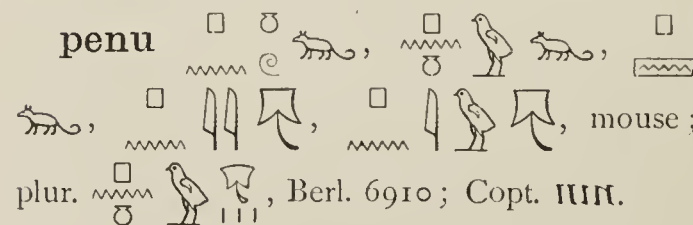 penu 𓊪𓈖𓏌𓏲 , 𓊪𓈖𓏌𓅱 , 𓊪
, 𓊪𓈖𓇋𓇋𓄛 , 𓊪𓈖𓇋𓅱𓄛 , mouse ;
plur. 𓊪𓈖𓏌𓅱𓄛𓏥 , Berl. 6910 ; Copt. ⲡⲓⲛ.